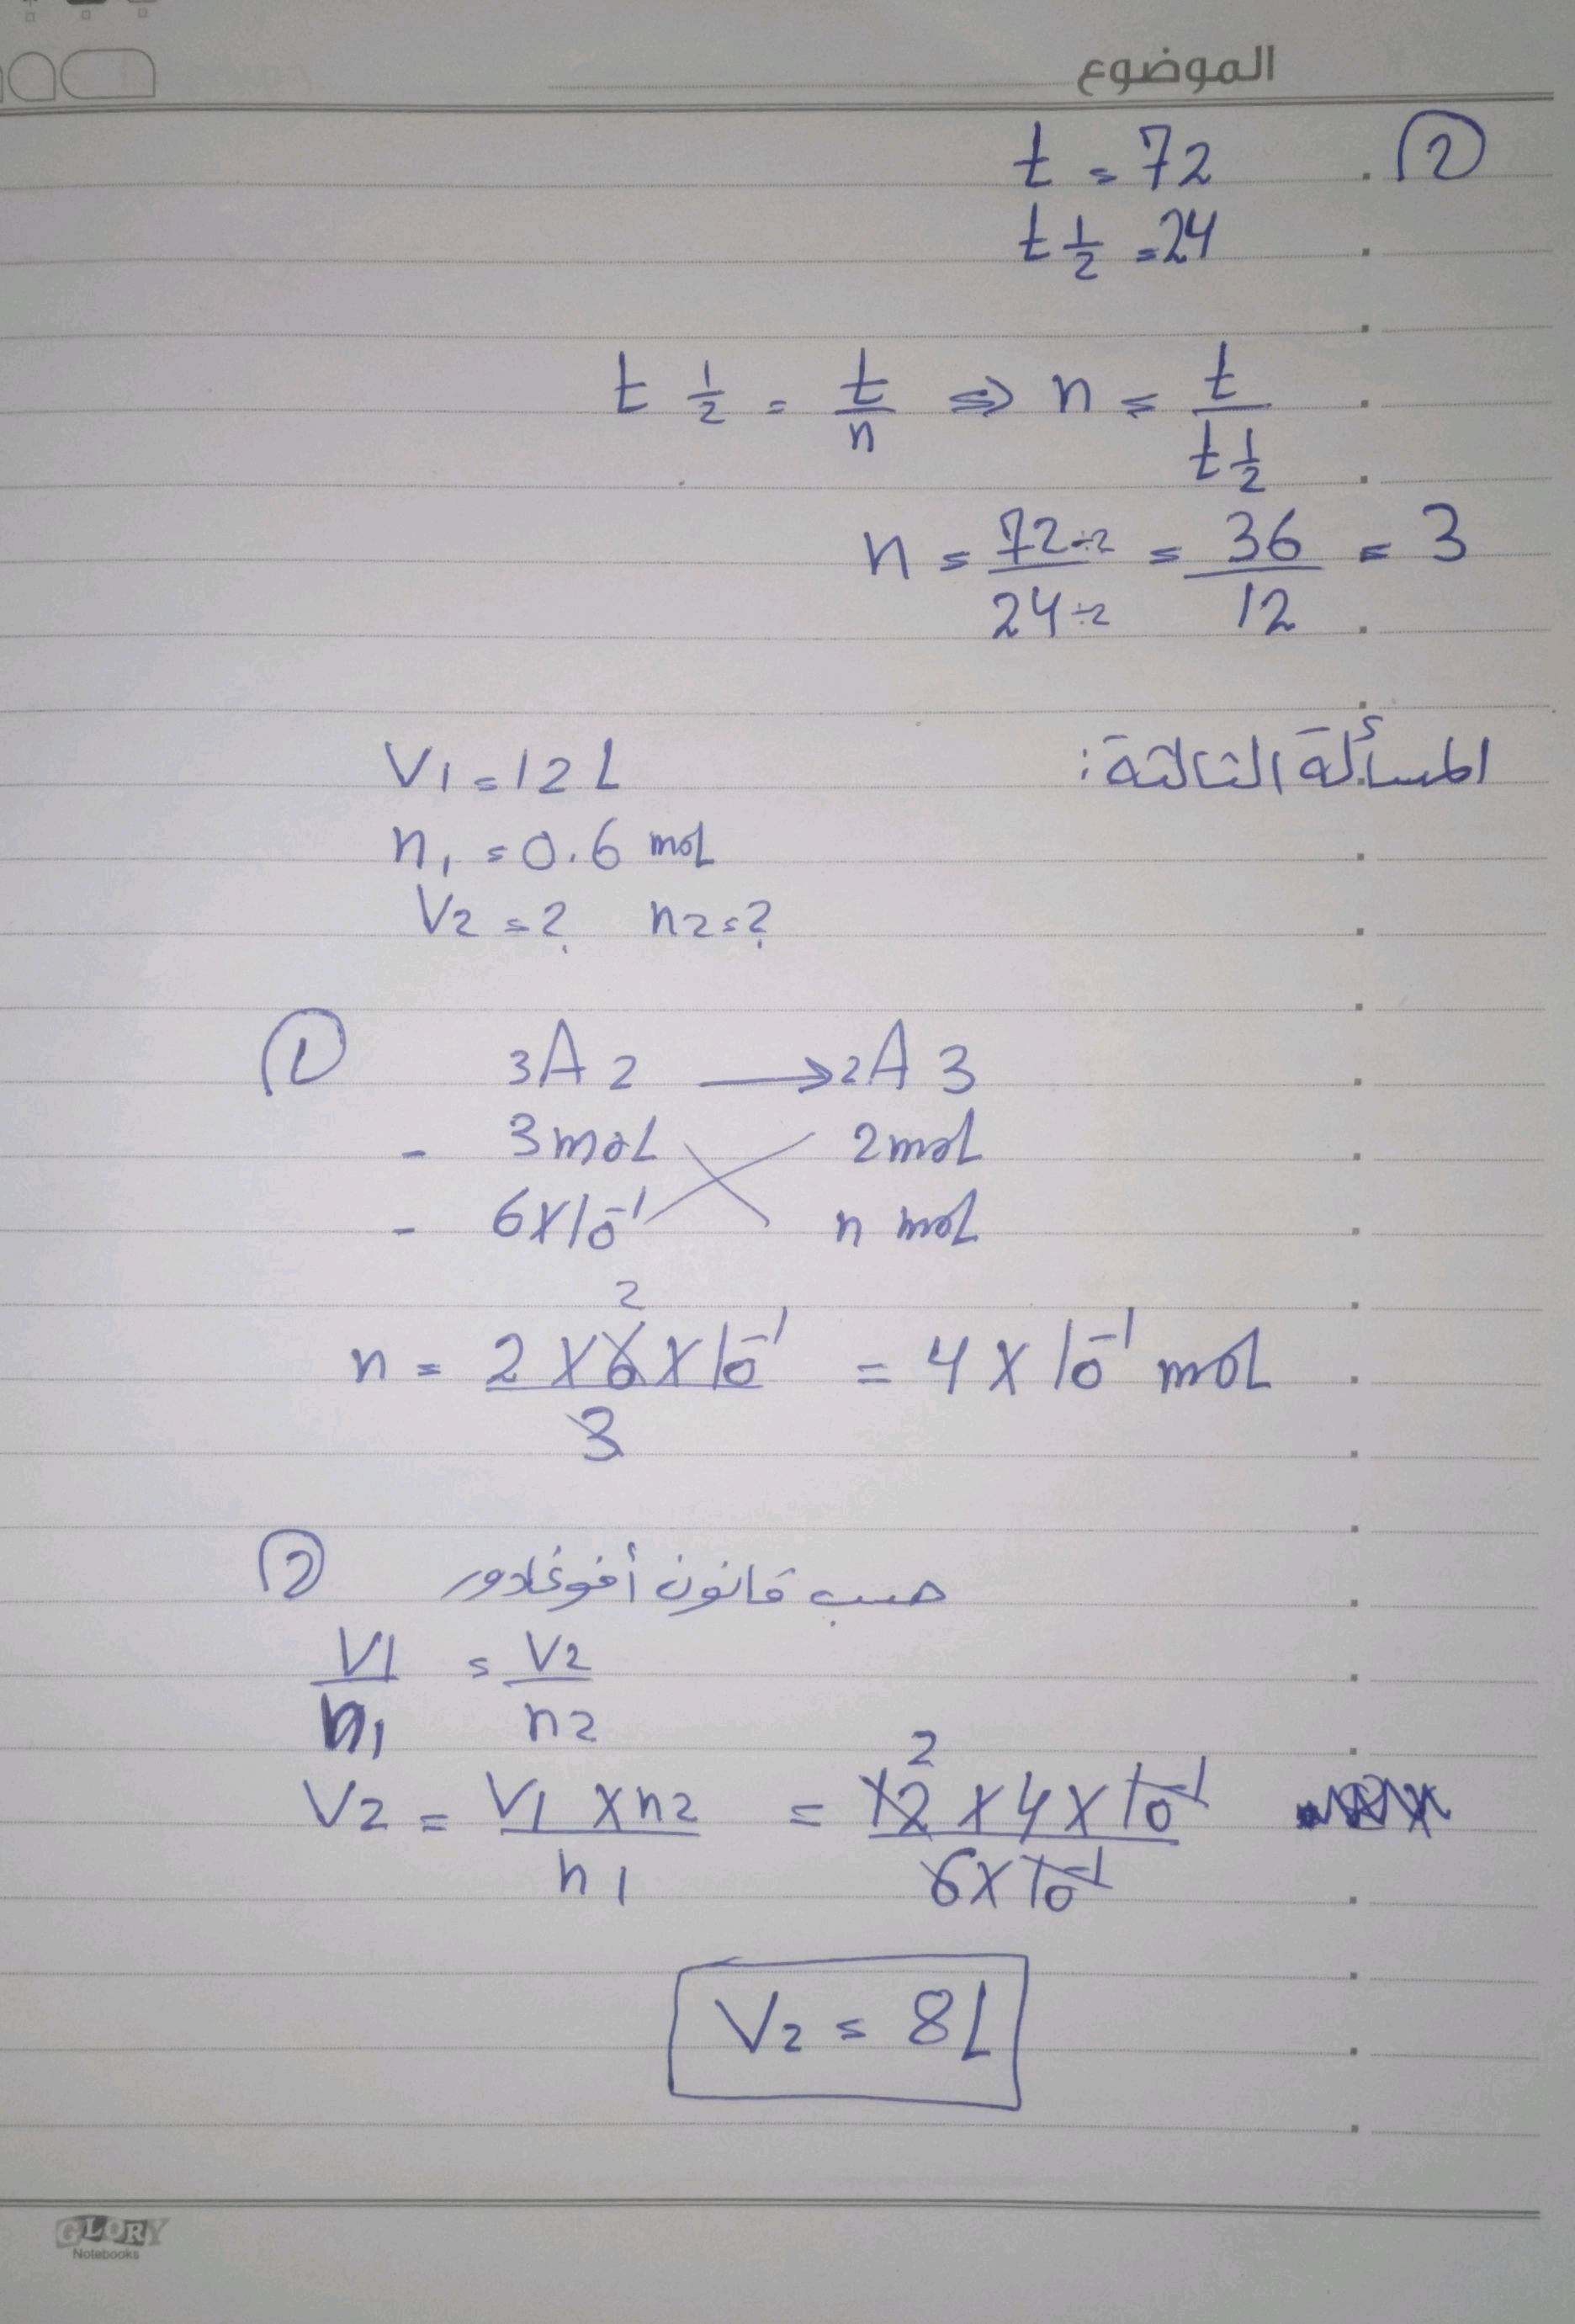 الموضوع
② t = 72
t 1/2 = 24
t 1/2 = t/n ⇒ n = t/t 1/2
n = 72÷2/24÷2 = 36/12 = 3
المسألة الثالثة:
V1 = 12 L
n1 = 0.6 mol
V2 = ? n2 = ?
① 3A2 → 2A3
- 3 mol 2 mol
- 6×10⁻¹ n mol
2
n = 2×6×10⁻¹/3 = 4×10⁻¹ mol
② حسب قانون أفوغادور
V1/n1 = V2/n2
2
V2 = V1 × n2/n1 = 12×4×10⁻¹/6×10⁻¹
V2 = 8L
GLORY
Notebooks